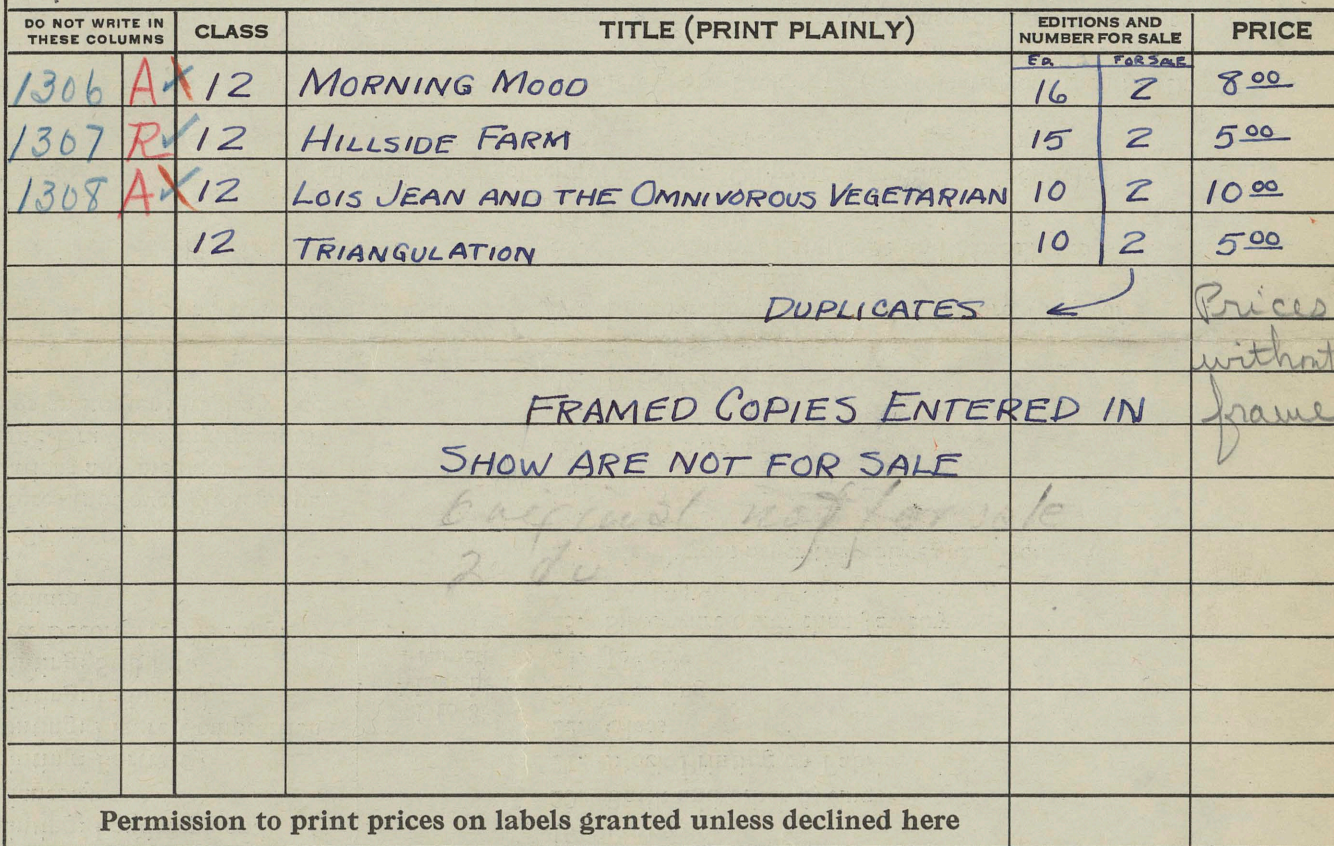 DO NOT WRITE IN THESE COLUMNS CLASS TITLE (PRINT PLAINLY) EDITIONS AND NUMBER FOR SALE PRICE
ED. FOR SALE
1306 A 12 MORNING MOOD 16 2 8 00
1307 R 12 HILLSIDE FARM 15 2 5 00
1308 A 12 LOIS JEAN AND THE OMNIVOROUS VEGETARIAN 10 2 10 00
12 TRIANGULATION 10 2 5 00
DUPLICATES
Prices
without
frame
FRAMED COPIES ENTERED IN
SHOW ARE NOT FOR SALE
Original not for sale
2 du
Permission to print prices on labels granted unless declined here